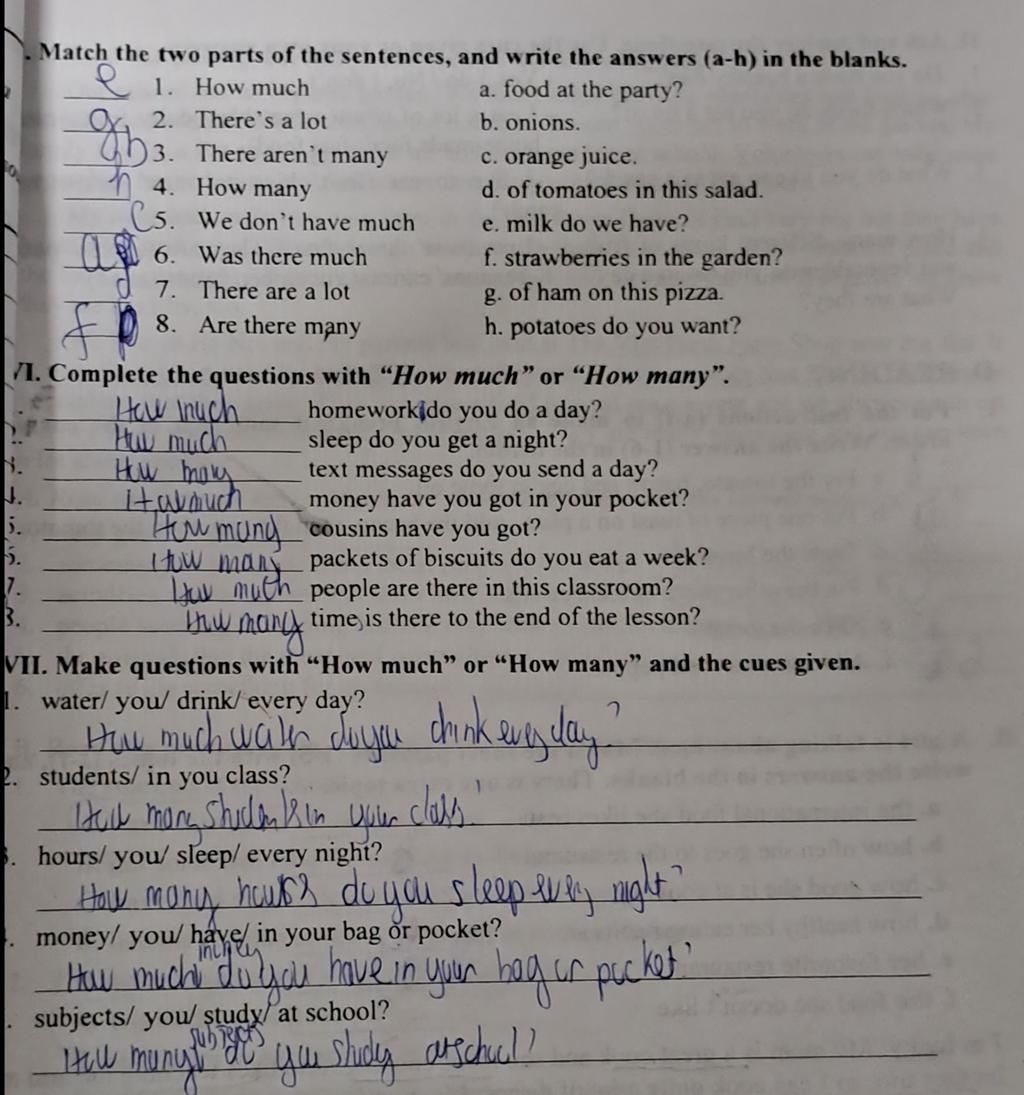 . Match the two parts of the sentences, and write the answers (a-h) in the blanks.
e 1. How much a. food at the party?
g 2. There's a lot b. onions.
b 3. There aren't many c. orange juice.
h 4. How many d. of tomatoes in this salad.
C 5. We don't have much e. milk do we have?
a 6. Was there much f. strawberries in the garden?
d 7. There are a lot g. of ham on this pizza.
f 8. Are there many h. potatoes do you want?
VI. Complete the questions with “How much” or “How many”.
How much homework do you do a day?
How much sleep do you get a night?
How many text messages do you send a day?
How much money have you got in your pocket?
5. How many cousins have you got?
How many packets of biscuits do you eat a week?
7. How much people are there in this classroom?
How many time is there to the end of the lesson?
VII. Make questions with “How much” or “How many” and the cues given.
1. water/ you/ drink/ every day?
How much water do you drink every day?
2. students/ in you class?
How many students in your class
. hours/ you/ sleep/ every night?
How many hours do you sleep every night?
. money/ you/ have/ in your bag or pocket?
money
How much do you have in your bag or pocket?
. subjects/ you/ study/ at school?
subjects
How many do you study at school?